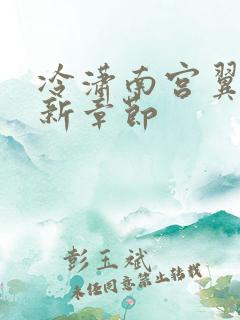 冷潇南宫翼
新章节
彭玉斌
未经同意禁止转载